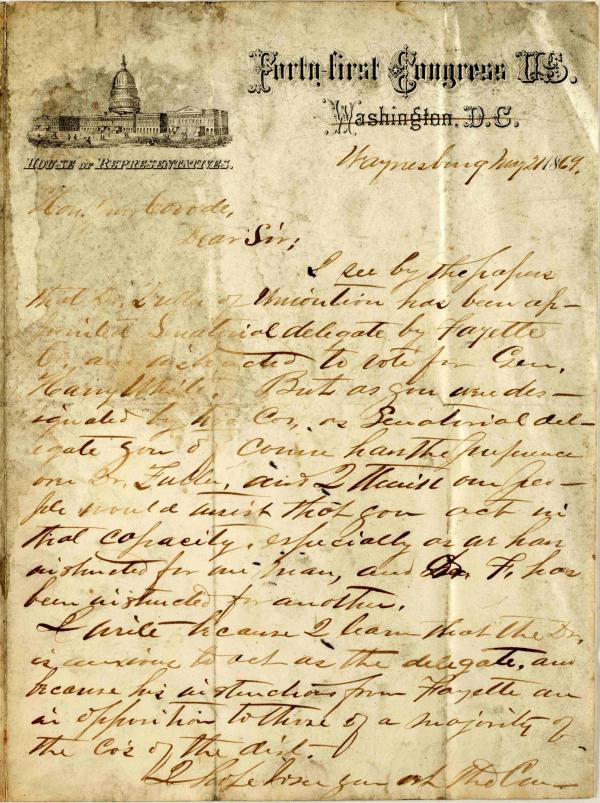 Forty-first Congress U.S.
Washington, D.C.
House of Representatives.
Waynesburg May 21 1869.
Hon. Covode,
Dear Sir;
I see by the papers
that Dr. Fuller of Uniontion has been ap-
pointed Senatorial delegate by Fayette
Co. and instructed to vote for Gen.
Harry White. But as you were des-
ignated by two Cos, as Senatorial del-
egate you of course has the preference
over Dr. Fuller, and I think our peo-
ple would insist that you act in
that capacity, especially as we have
instructed for one man, and Dr. F. has
been instructed for another.
I write because I learn that the Dr.
is anxious to act as the delegate, and
because his instructions from Fayette are
in opposition to those of a majority of
the Co's of the dist.
I hope to see you at the Con-